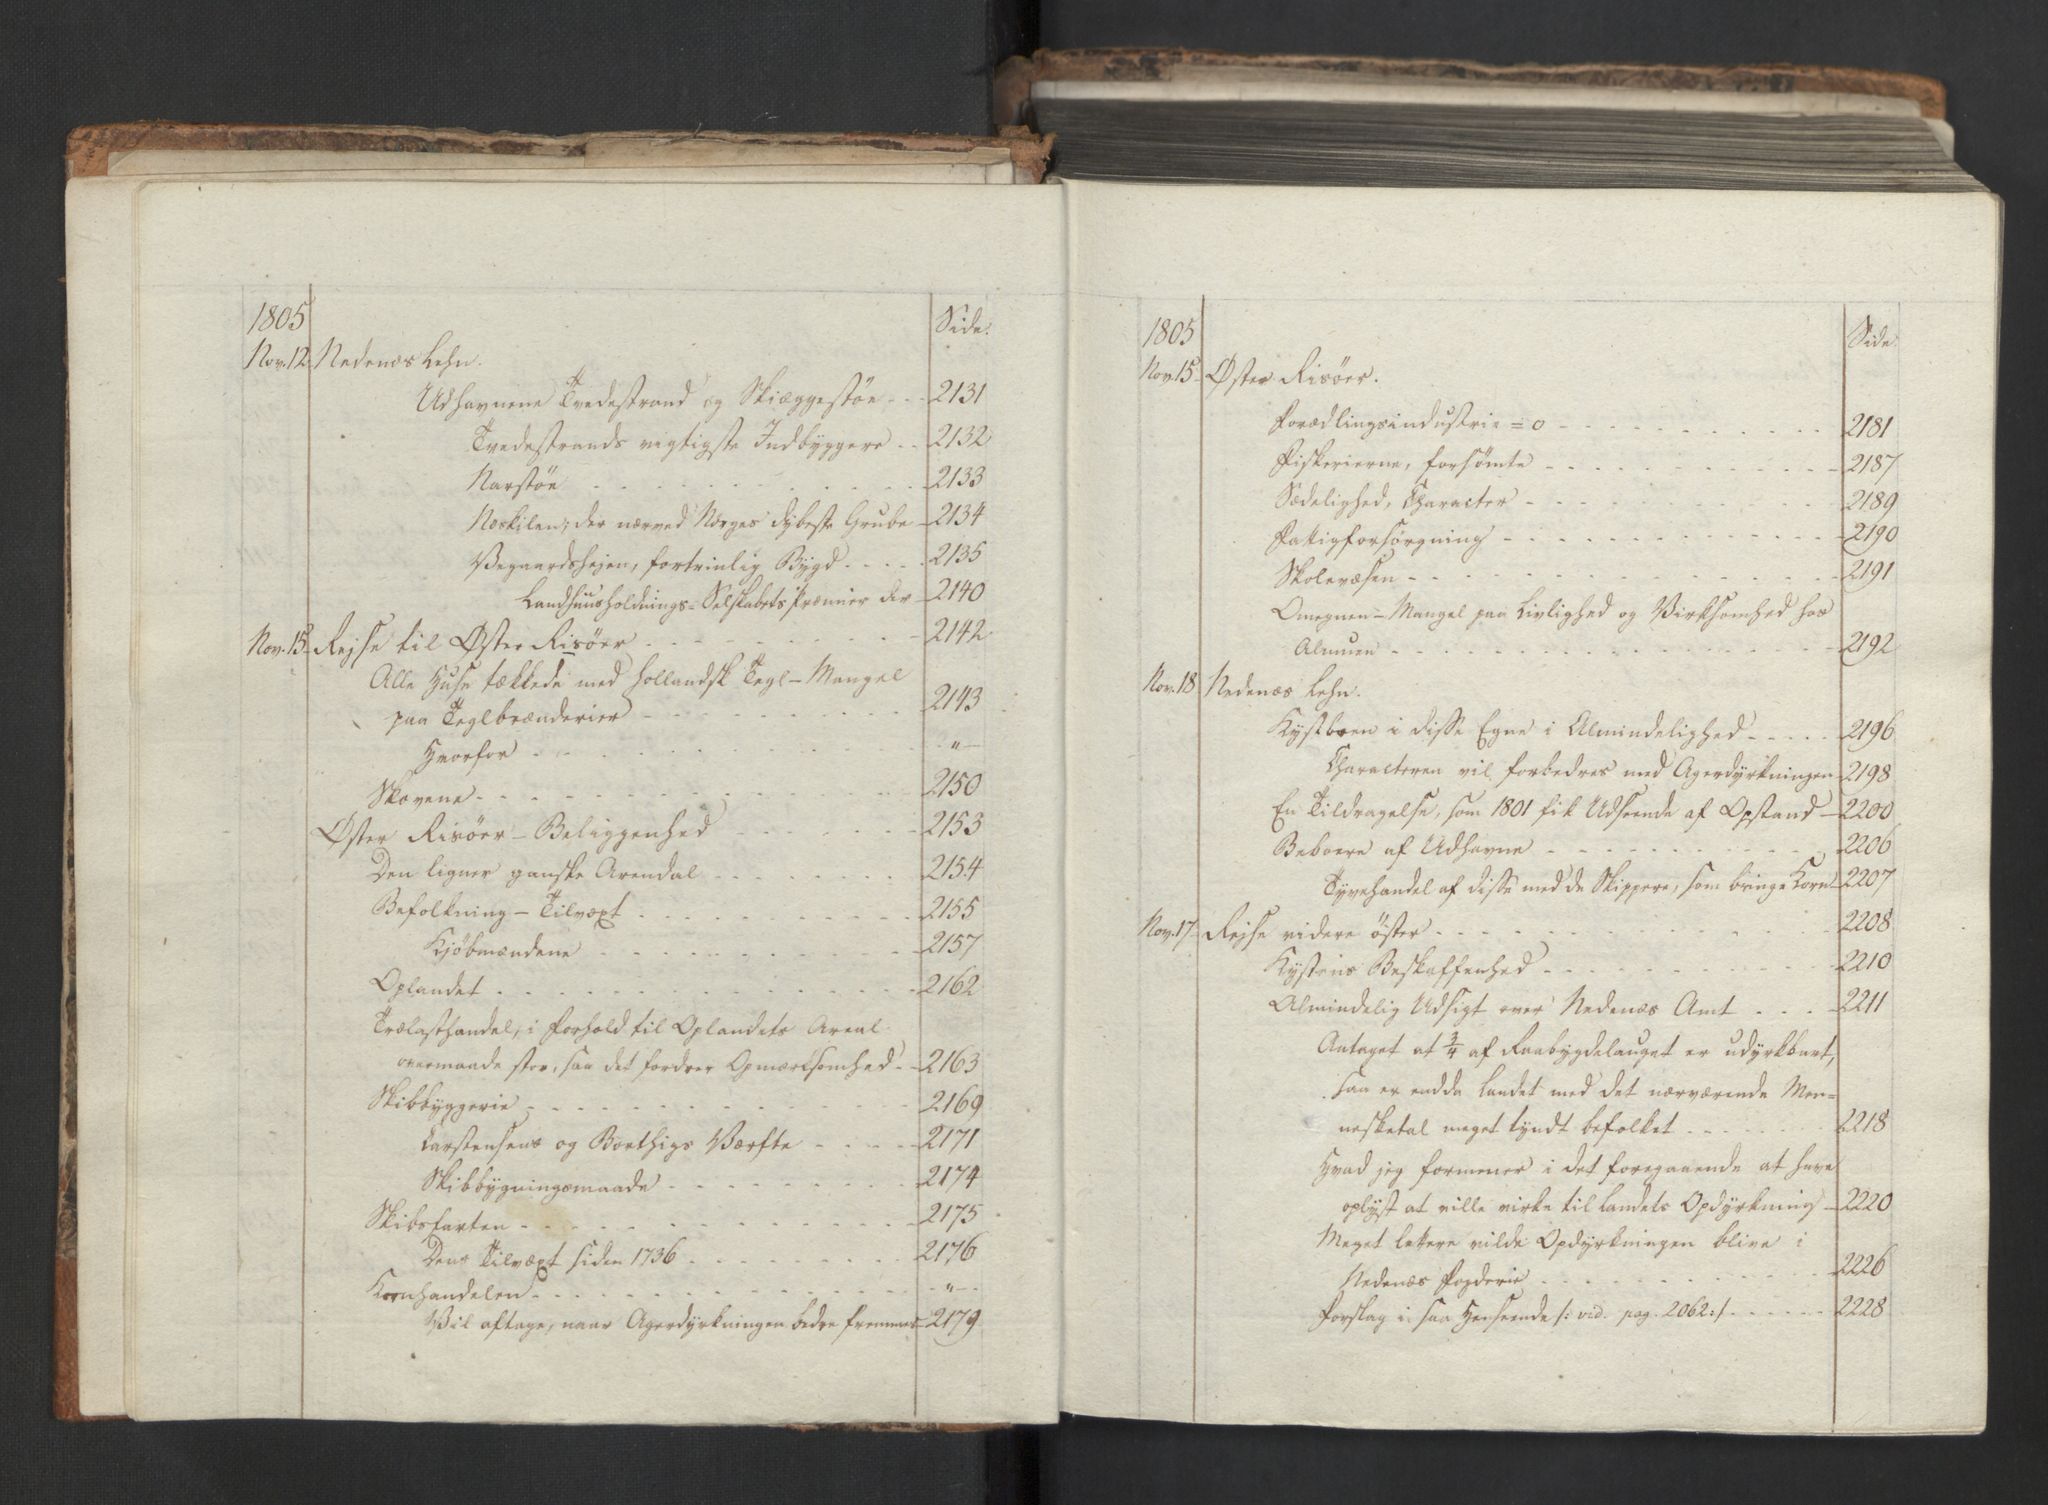 1805
Side.
Nov. 12. Nedenæs Lehn.
Udhavnene Tvedestrand og Skiæggestöe - - 2131
Tvedestrands vigtigste Indbyggere - - 2132
Narstöe - - - 2133
Neskilen; der nærved Norges dybeste Grube - 2134
Vegaardshejen, fortrinlig Bygd - - - 2135
Landhuusholdnings-Selskabets Præmier der - 2140
Nov. 15. Rejse til Øster Risöer - - - 2142
Alle Huse tækkede med hollandsk Tegl - Mangel
paa Teglbrænderier - - - 2143
Hvorfor - - - "
Skovene - - - 2150
Øster Risöer - Beliggenhed - - - 2153
Den ligner ganske Arendal - - - 2154
Befolkning - Tilvæxt - - - 2155
Kjöbmændene - - - 2157
Oplandet - - - 2162
Trælasthandel, i Forhold til Oplandets Areal
overmaade stor, saa det fordrer Opmærksomhed - 2163
Skibbyggerie - - - 2169
Carstensens og Boethigs Værfte - - - 2171
Skibbygningsmaade - - - 2174
Skibsfarten - - - 2175
Dens Tilvæxt siden 1736 - - - 2176
Kornhandelen - - - "
Vil aftage, naar Agerdyrkningen bedre fremmes - 2179
1805
Side
Nov. 15. Øster Risöer.
Forædlingsindustrie = 0 - - - 2181
Fiskerierne, forsömte - - - 2187
Sædelighed, Character - - - 2189
Fattigforsörgning - - - 2190
Skolevæsen - - - 2191
Omegnen - Mangel paa Livlighed og Virksomhed hos
Almuen - - - 2192
Nov. 18 Nedenæs Lehn.
Kystboen i disse Egne i Almindelighed - - - 2196
Characteren vil forbedres med Agerdyrkningen - 2198
En Tildragelse, som 1801 fik Udseende af Opstand - 2200
Beboere af Udhavne - - - 2206
Tyvehandel af disse med de Skippere, som bringe Korn - 2207
Nov. 17. Rejse videre öster - - - 2208
Kystens Beskaffenhed - - - 2210
Almindelig Udsigt over Nedenæs Amt - - - 2211
Antaget at 3/4 af Raabygdelauget er udyrkbart,
saa er endda Landet med det nærværende Men=
nesketal meget tyndt befolket - - - 2218
Hvad jeg formener i det foregaaende at have
oplyst at ville virke til Landets Opdyrkning - 2220
Meget lettere vilde Opdyrkningen blive i
Nedenæs Fogderie - - - 2226
Forslag i saa Henseende /: vid. pag. 2062:/ - - - 2228